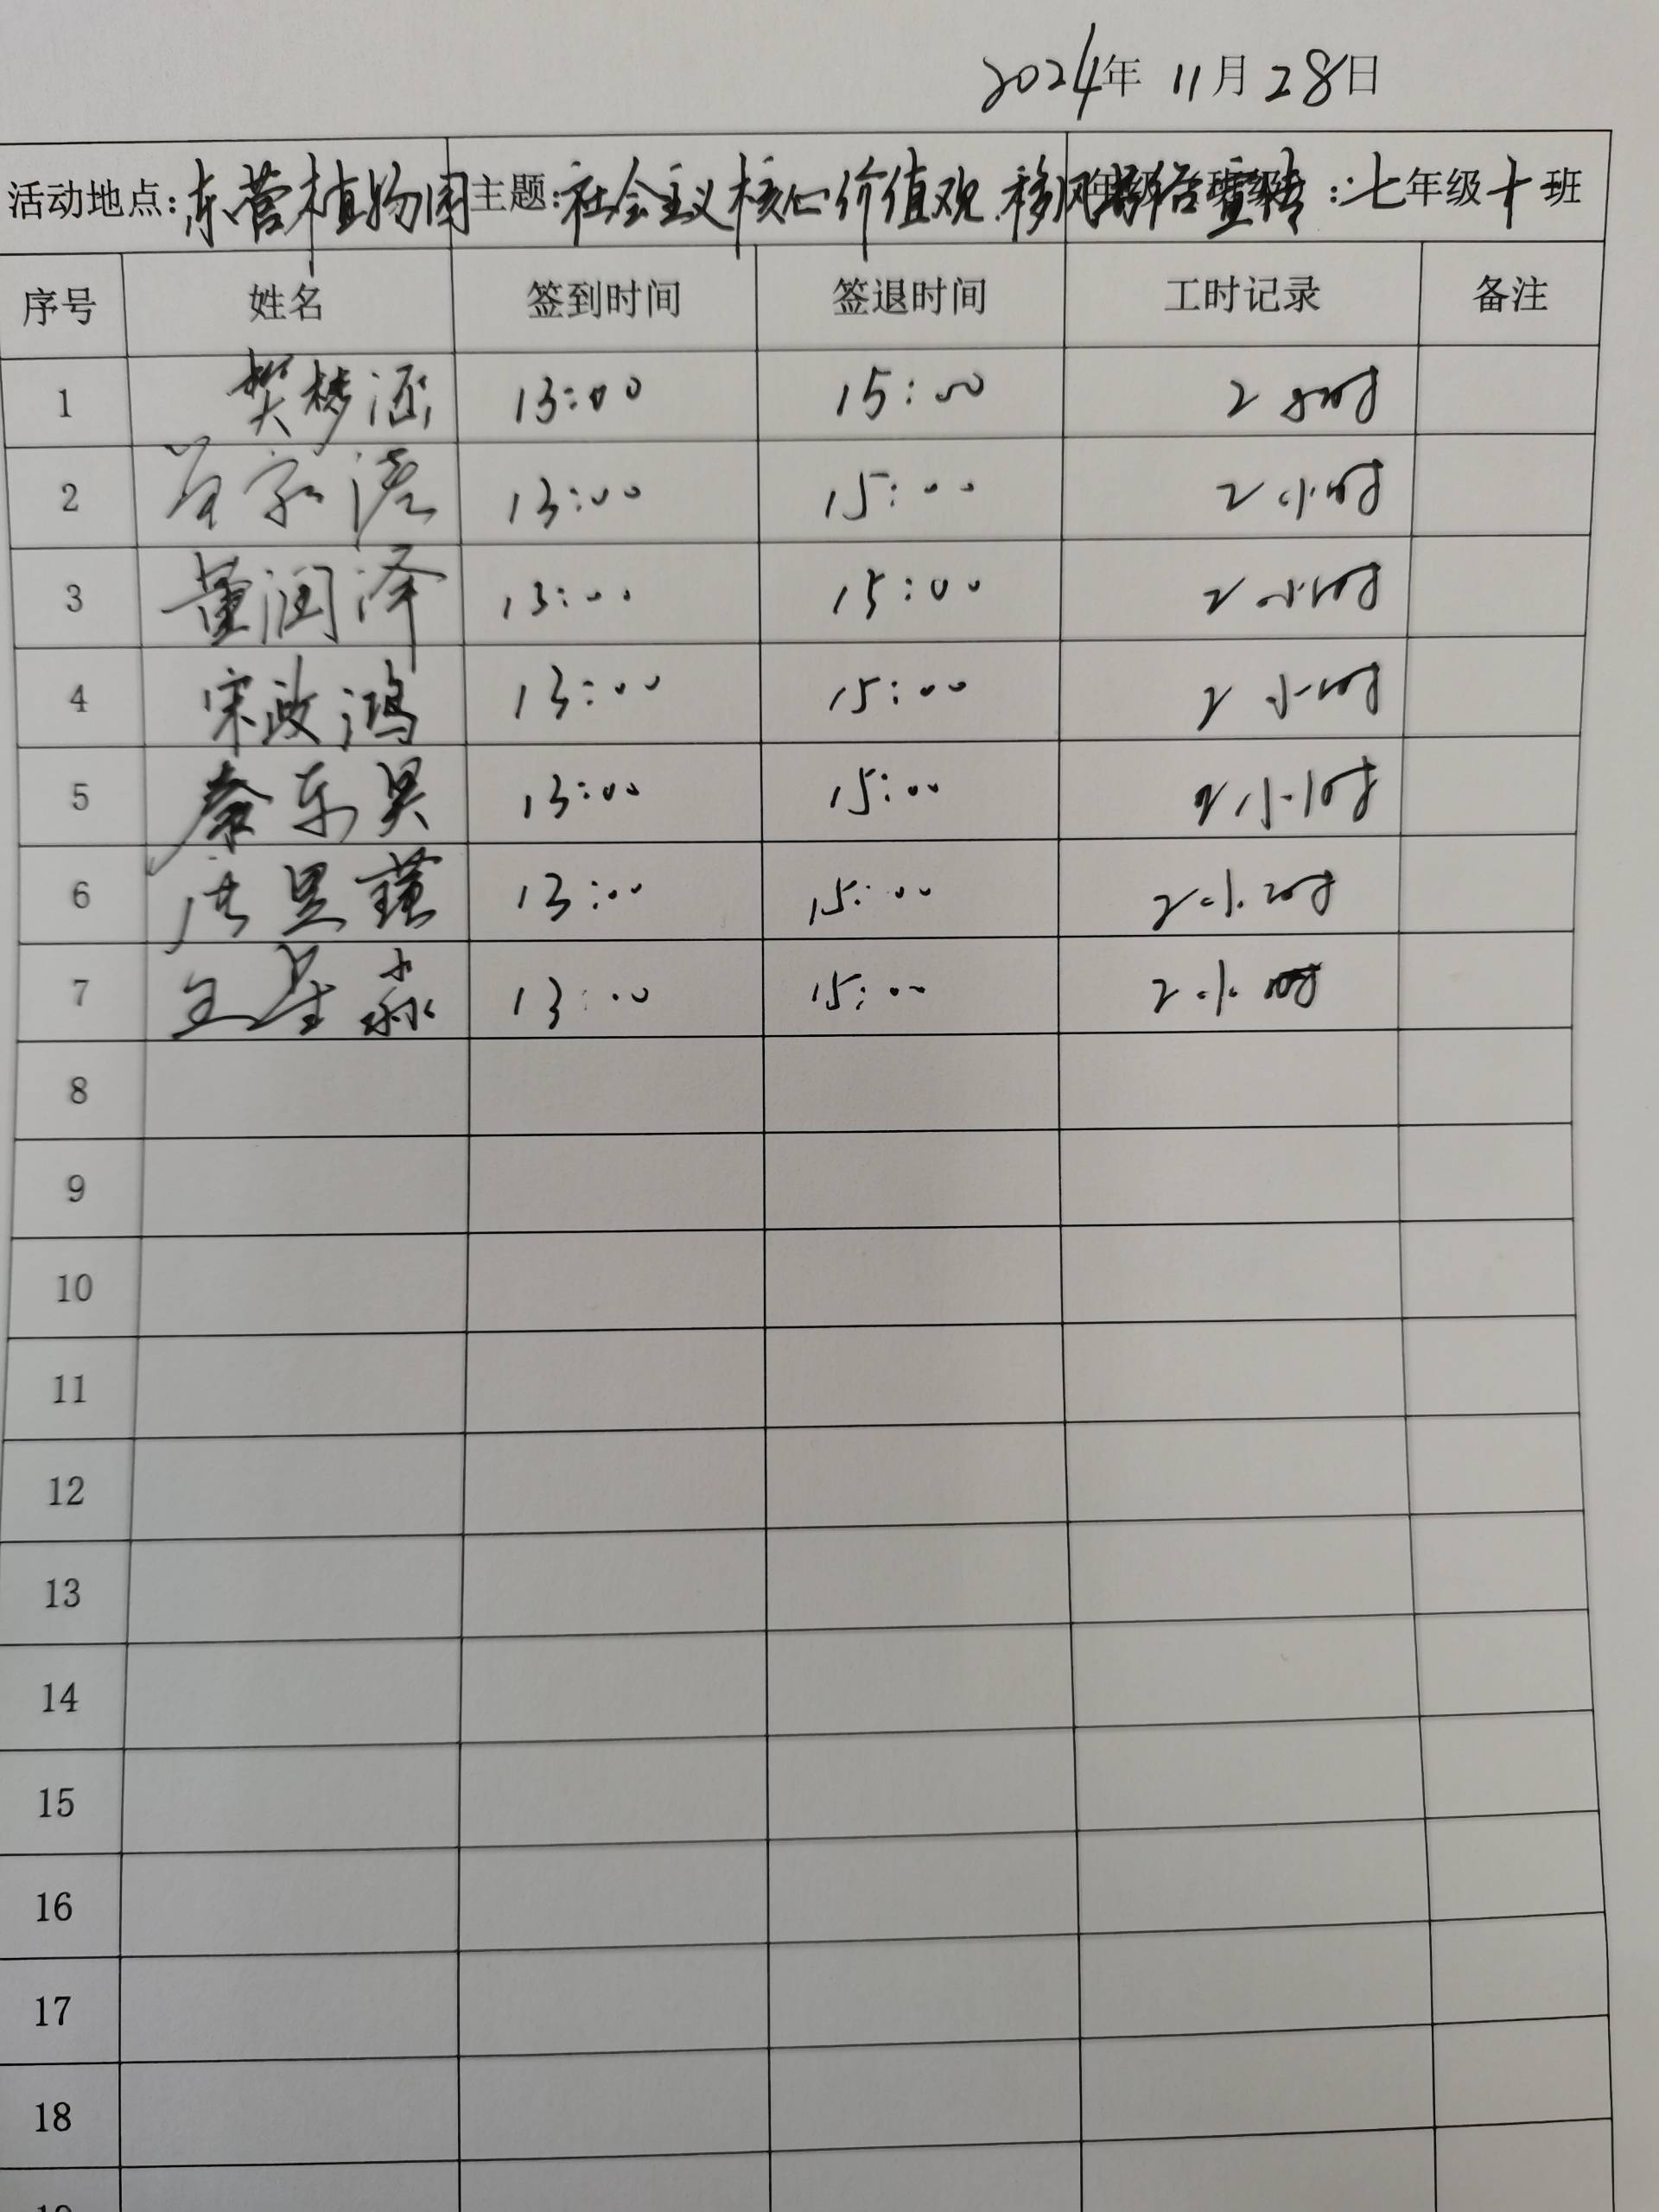 2024年 11月 28日
活动地点:东营植物园 主题:社会主义核心价值观.移风易俗宣传 年级、班级:七年级十班
序号 姓名 签到时间 签退时间 工时记录 备注
1 樊梦涵 13:00 15:00 2小时
2 13:00 15:00 2小时
3 董润泽 13:00 15:00 2小时
4 宋政鸿 13:00 15:00 2小时
5 秦东昊 13:00 15:00 2小时
6 13:00 15:00 2小时
7 王星淼 13:00 15:00 2小时
8
9
10
11
12
13
14
15
16
17
18